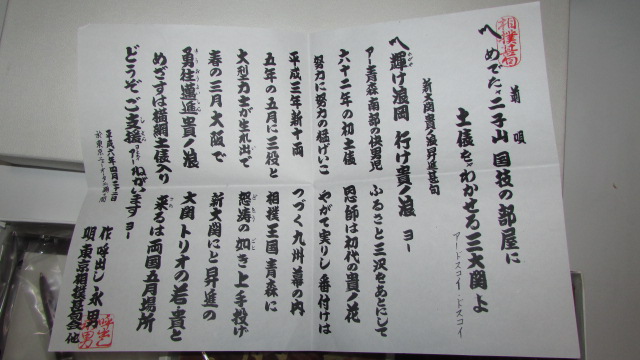 相撲甚句
前唄
〽めでたさ二子山 国技の部屋に
土俵をわかせる三大関よ
アードスコイ ドスコイ
新大関貴ノ浪昇進甚句
〽輝け浪岡 行け貴ノ浪 ヨー
アー青森南部の快男児
ふるさと三沢をあとにして
六十二年の初土俵
恩師は初代の貴ノ花
努力に努力の猛げいこ
やがて実りし番付けは
平成三年新十両
つづく九州幕の内
五年の五月に三役と
相撲王国青森に
大型力士が生れ出で
怒涛の如き上手投げ
春の三月大阪で
新大関にと昇進の
勇往邁進貴ノ浪
大関トリオの若・貴と
めざすは横綱土俵入り
来るは両国五月場所
どうぞご支援ねがいますヨー
平成六年四月二十二日
作 呼出し永男
唄 東京相撲甚句会 他